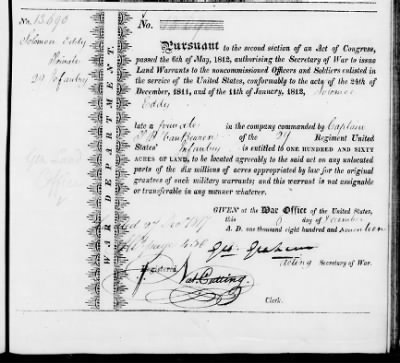 No. 13690
Solomon Eddy
Private
29 Infantry
WAR DEPARTMENT.
No.
Pursuant to the second section of an Act of Congress,
passed the 6th of May, 1812, authorising the Secretary of War to issue
Land Warrants to the noncommissioned Officers and Soldiers enlisted in
the service of the United States, conformably to the acts of the 24th of
December, 1811, and of the 11th of January, 1812, Solomon
Eddy
late a private in the company commanded by Captain
Van Beuren of the 29 Regiment United
States' Infantry is entitled to ONE HUNDRED AND SIXTY
ACRES OF LAND, to be located agreeably to the said act on any unlocated
parts of the six millions of acres appropriated by law for the original
grantees of such military warrants; and this warrant is not assignable
or transferable in any manner whatever.
GIVEN at the War Office of the United States,
this day of December
A. D. one thousand eight hundred and seventeen
Geo. Graham
Acting Secretary of War.
Registered
Nat. Cutting.
Clerk.